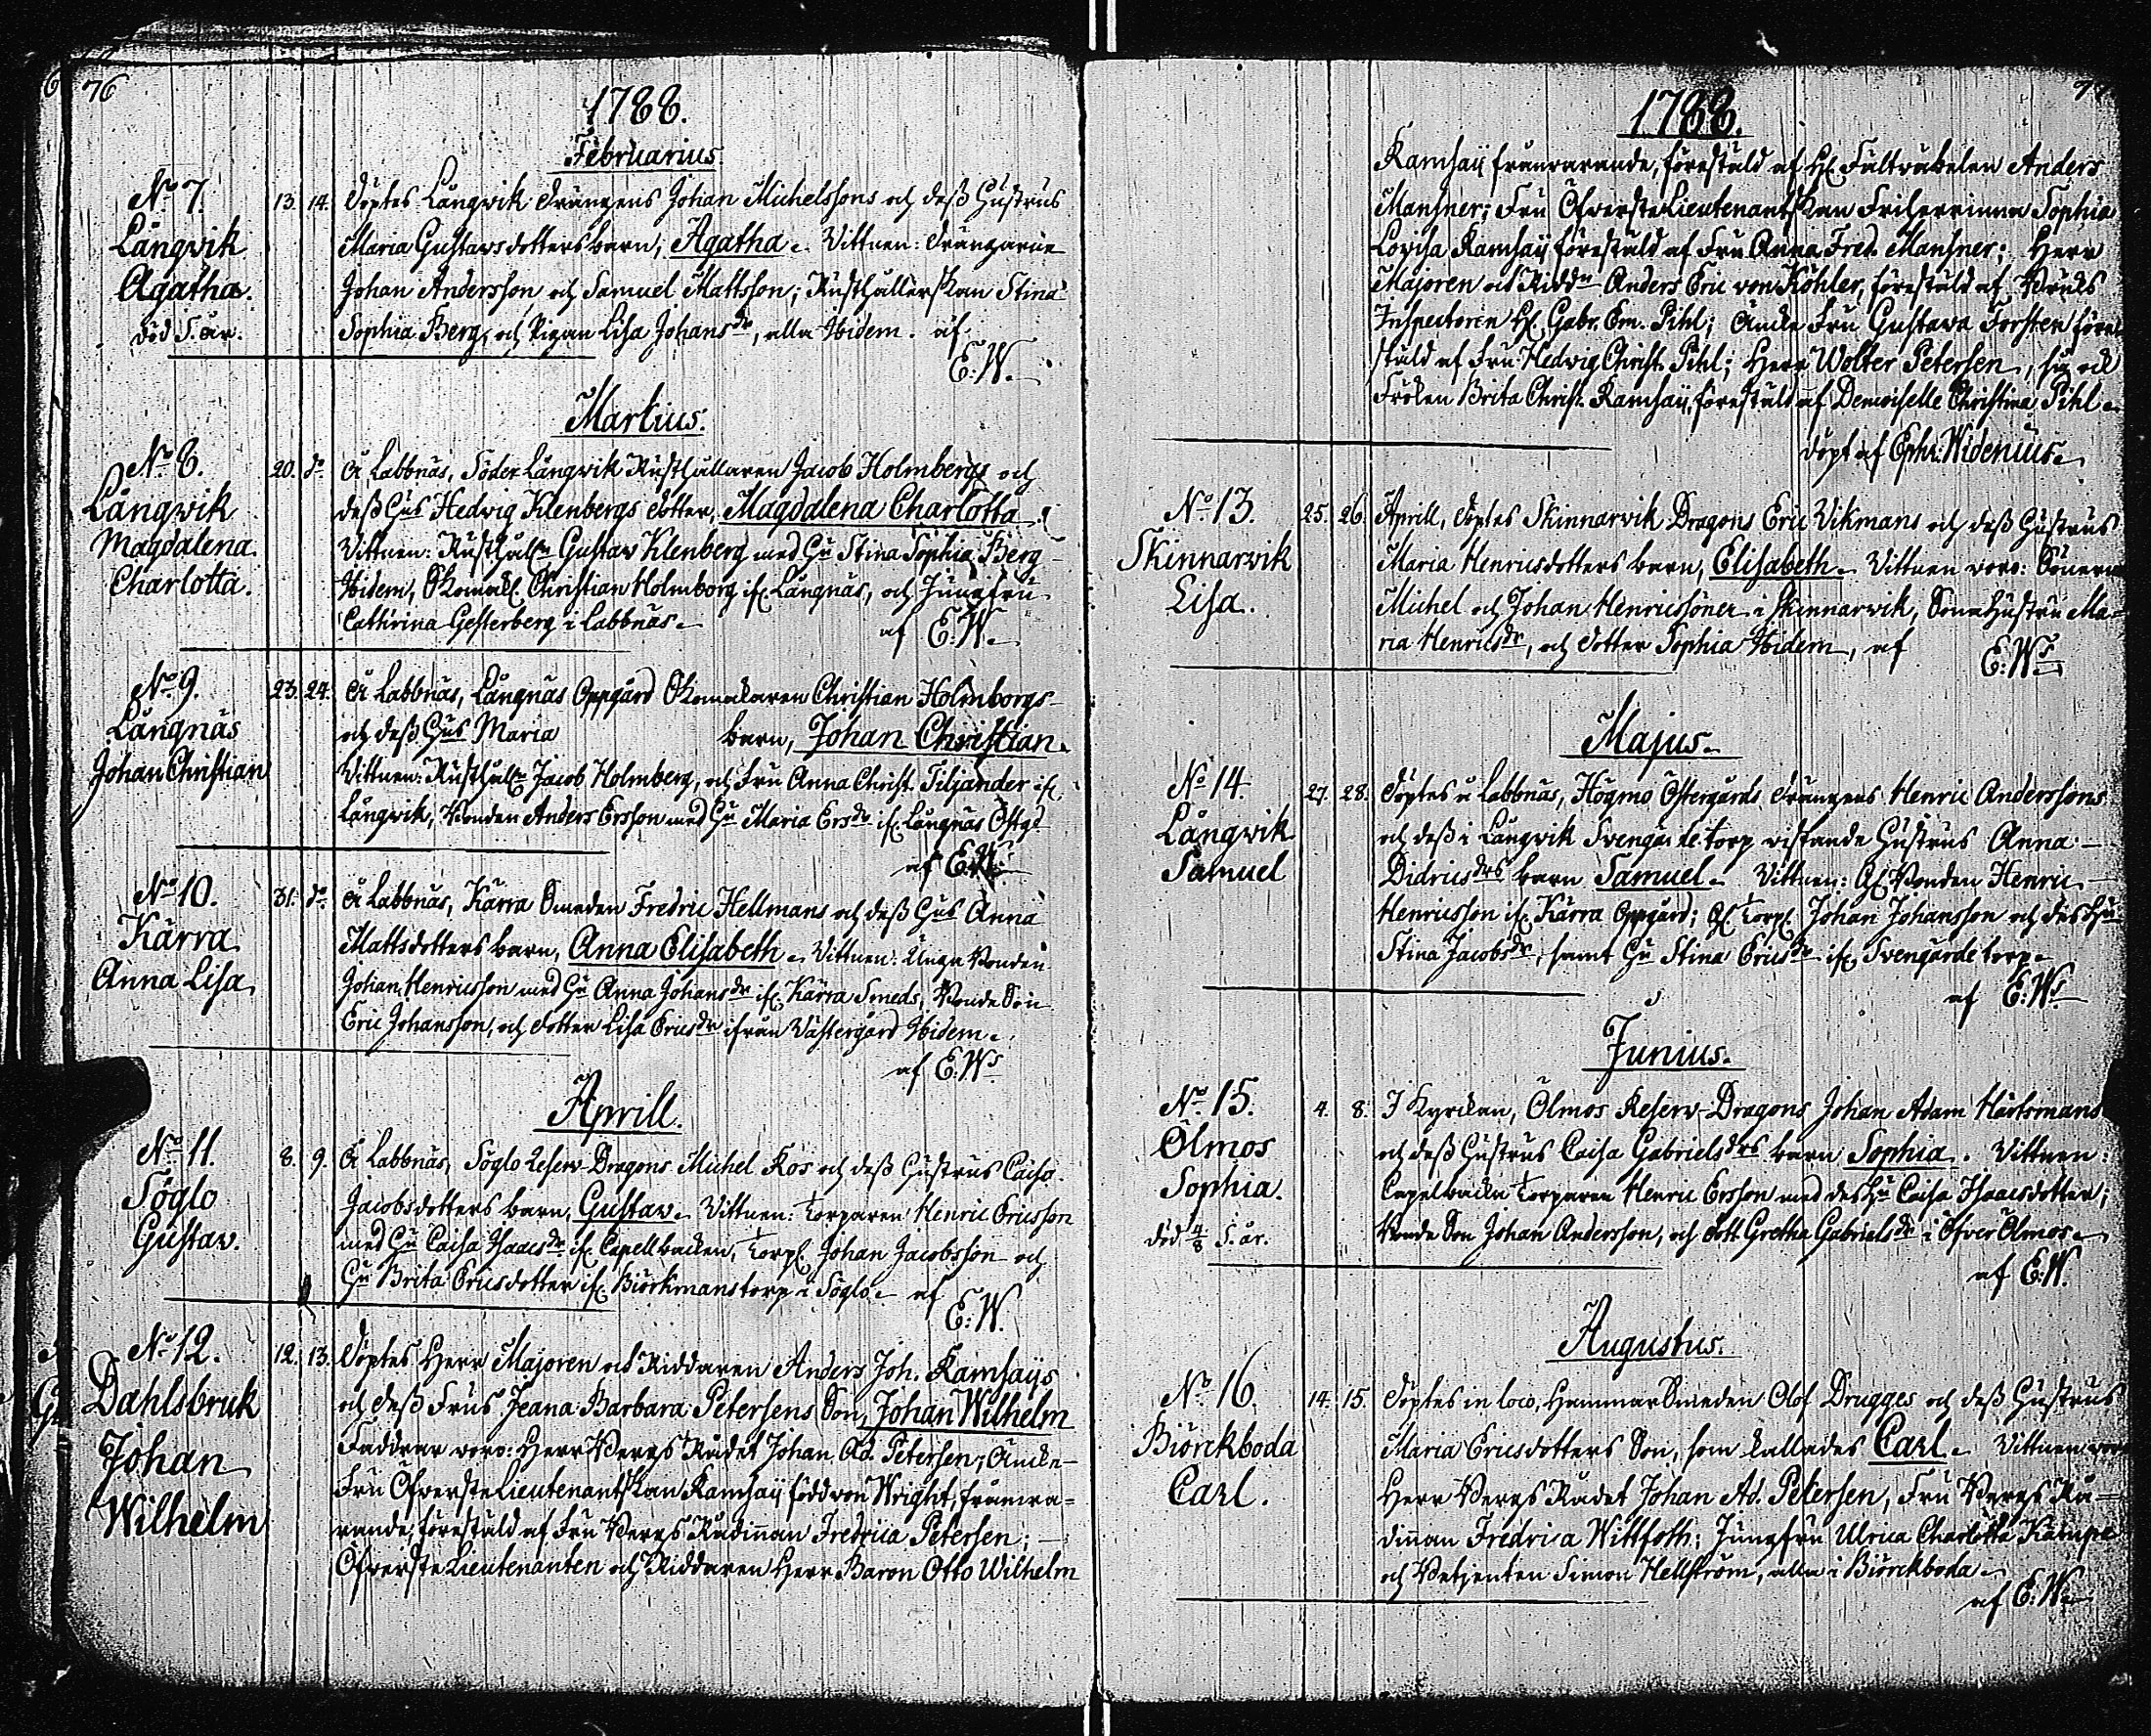 76
1788.
Februarius
No 7.
Långwik
Agatha.
död S. år.
13. 14. Döptes Långwik Drängens Johan Michelssons och dess Hustrus
Maria Gustavsdotters barn, Agatha. Vittnen: Drängarne
Johan Andersson och Samuel Mattsson; Rusthållerskan Stina
Sophia Berg, och Pigan Lisa Johansdr, alla Ibidem. af
E:W.
Martius.
No 8.
Långwik
Magdalena
Charlotta.
20. do Å Labbnäs, Söder Långwik Rusthållaren Jacob Holmbergs och
dess Hus Hedvig Klenbergs dotter, Magdalena Charlotta
Vittnen: Rusthåln Gustav Klenberg med Hu Stina Sophia Berg
Ibidem, Skomak. Christian Holmborg if. Långnäs, och Jungfru
Cathrina Gesterberg i Labbnäs.
af E:W.
No 9.
Långnäs
Johan Christian
23. 24. Å Labbnäs, Långnäs Oppgård Skomakaren Christian Holmborgs
och dess Hus Maria barn, Johan Christian.
Vittnen: Rusthåln Jacob Holmberg, och Fru Anna Christ. Tiljander if.
Långwik, Bonden Anders Ersson med Hu Maria Ersdr if. Långnäs Östgd
af E:W.
No 10.
Kärra
Anna Lisa
31. do Å Labbnäs, Kärra Smeden Fredric Hellmans och dess Hus Anna
Mattsdotters barn, Anna Elisabeth. Vittnen: Unga Bonden
Johan Henricsson med Hu Anna Johansdr if. Kärra Smeds, Bonde Son
Eric Johansson, och dotter Lisa Ericsdr ifrån Västergård Ibidem.
af E:Ws
Aprill.
No 11.
Söglo
Gustav.
8. 9. Å Labbnäs, Söglo Reserv-Dragons Michel Ros och dess Hustrus Caisa
Jacobsdotters barn, Gustav. Vittnen: Torparen Henric Ericsson
med Hu Caisa Isaacsdr if. Capellbacken, Torp. Johan Jacobsson och
Hu Brita Ericsdotter if. Biörkmanstorp i Söglo. af
E:W.
No 12.
Dahlsbruk
Johan
Wilhelm
12. 13. Döptes Herr Majoren och Riddaren Anders Joh. Ramsaÿs
och dess Frus Jeana Barbara Petersens Son, Johan Wilhelm
Faddrar voro: Herr Bergs Rådet Johan Ad. Petersen; Äncke-
Fru Öfverste Lieutenantskan Ramsaÿ född von Wright, frånva=
rande, föreställd af Fru Bergs Rådinnan Fredrica Petersen;
Öfverste Lieutenanten och Riddaren Herr Baron Otto Wilhelm
1788.
Ramsaÿ frånvarande, föreställd af H. Fältväbelen Anders
Mansner; Fru Öfverste Lieutenantskan Friherrinna Sophia
Lovisa Ramsaÿ föreställd af Fru Anna Fred. Mansner; Herr
Majoren och Riddn Anders Eric von Köhler, föreställd af Bruks
Inspectoren H. Gabr. Em. Pihl; Äncke Fru Gustava Forsten före
ställd af Fru Hedvig Christ. Pihl; Herr Wolter Petersen, och
Fröken Brita Christ. Ramsaÿ, föreställd af Demoiselle Christina Pihl.
döpt af Ephr. Widenius.
No 13.
Skinnarvik
Lisa.
25. 26. Aprill, döptes Skinnarvik Dragons Eric Vikmans och dess Hustrus
Maria Henricsdotters barn, Elisabeth. Vittnen voro: Sönerne
Michel och Johan Henricssöner i Skinnarwik, Sonehustru Ma=
ria Henricsdr, och dotter Sophia Ibidem, af
E:Ws
Majus.
No 14.
Långwik
Samuel
27. 28. Döptes å Labbnäs, Högmo Östergårds Drängens Henric Anderssons
och dess i Långvik Svengärde torp vistande Hustrus Anna
Didricsdrs barn Samuel. Vittnen: Gl. Bonden Henric
Henricsson if. Kärra Oppgård; Gl. Torp. Johan Johansson och des Hu
Stina Jacobsdr; samt Hu Stina Ericsdr if. Svengärde torp.
af E:Ws
Junius.
No 15.
Ölmos
Sophia.
död 4/8 S. år.
4. 8. I Kyrckan, Ölmos Reserv-Dragons Johan Adam Hartsmans
och dess Hustrus Caisa Gabrielsdrs barn Sophia. Vittnen:
Capelbacka Torparen Henric Ersson med des Hu Caisa Isaacsdotter;
Bonde Son Johan Andersson, och Dott. Gretha Gabrielsdr i Öfver Ölmos.
af E:W.
Augustus.
No 16.
Biörckboda
Carl.
14. 15. Döptes in loco, Hammar Smeden Olof Drugges och dess Hustrus
Maria Ericsdotters Son, som kallades Carl. Vittnen voro
Herr Bergs Rådet Johan Ad. Petersen, Fru Bergs Rå=
dinnan Fredrica Wittfoth; Jungfru Ulrica Charlotta Kämpe
och Betjenten Simon Hellström, alla i Biörckboda.
af E:W.